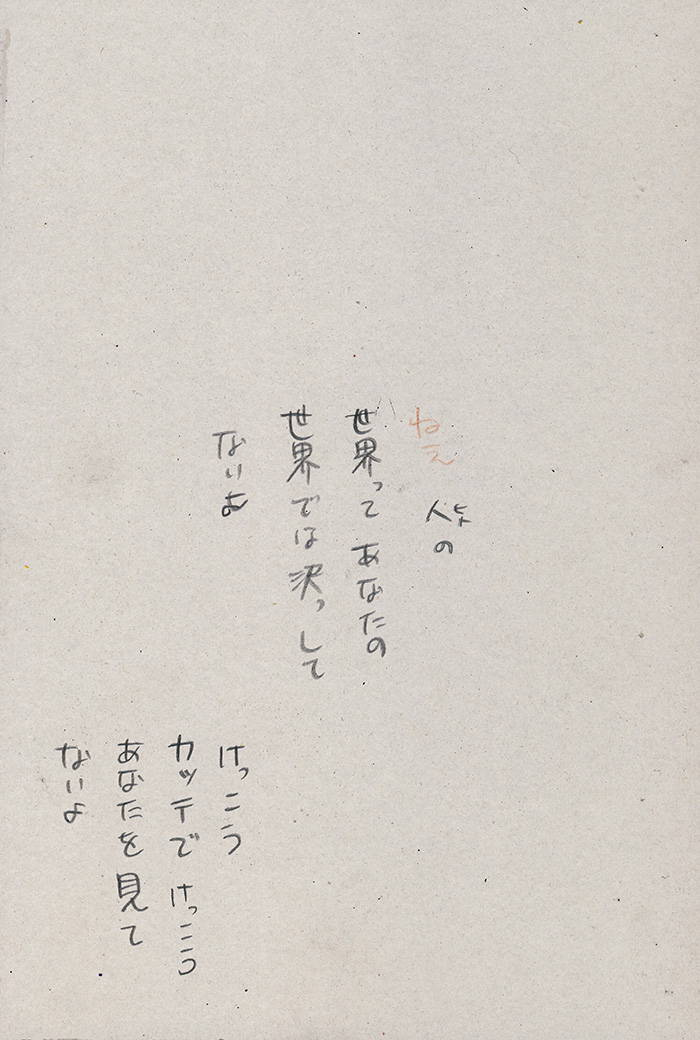 ねえ
人の
ヒト
世界って あなたの
世界では決っして
ないよ
けっこう
カッテで けっこう
あなたを見て
ないよ